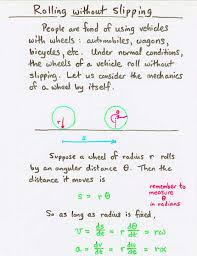 Rolling without Slipping
People are fond of using vehicles
with wheels: automobiles, wagons,
bicycles, etc. Under normal conditions,
the wheels of a vehicle roll without
slipping. Let us consider the mechanics
of a wheel by itself.
r
s
Suppose a wheel of radius r rolls
by an angular distance θ. Then the
distance it moves is
s = rθ
remember to
measure
θ
in radians
So as long as radius is fixed,
v = ds/dt = r dθ/dt = rω
a = dv/dt = r dω/dt = rα